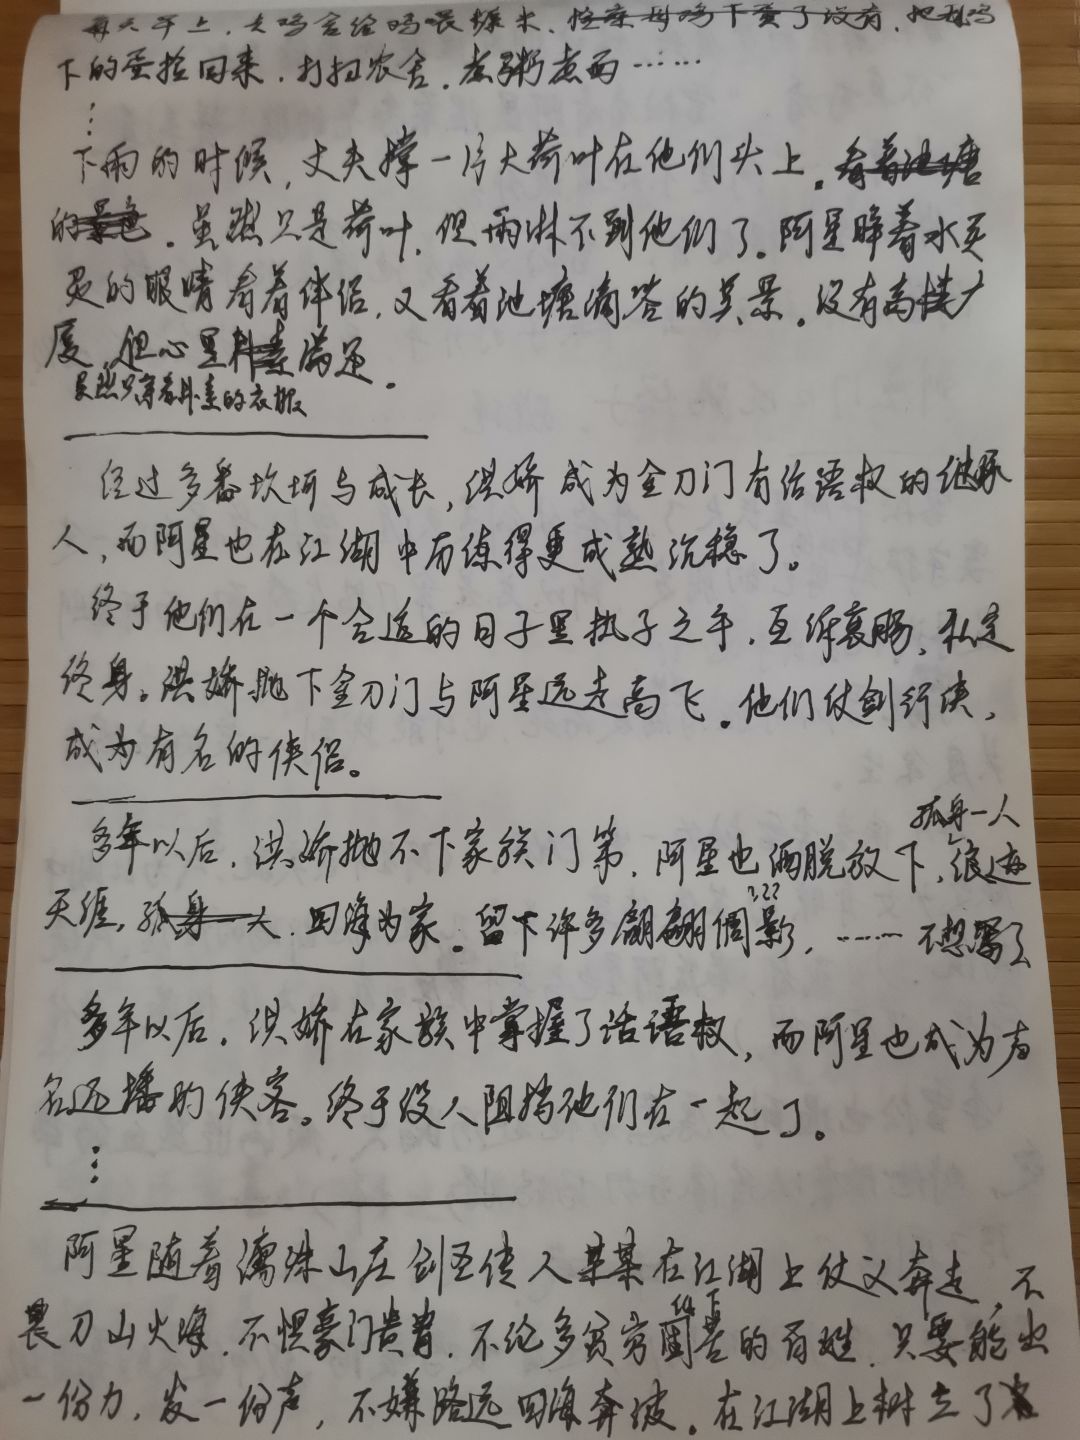 每天早上，去鸡舍给鸡喂糠米，检查母鸡下蛋了没有，把母鸡
下的蛋捡回来，打扫农舍，煮粥煮面……
⋮
下雨的时候，丈夫撑一片大荷叶在他们头上。看着池塘
的景色。虽然只是荷叶，但雨淋不到他们了。阿星睁着水灵
灵的眼睛看着伴侣，又看着池塘滴答的美景。没有高楼广
厦，但心里朴素满足。
虽然只穿着朴素的衣服
经过多番坎坷与成长，洪娇成为金刀门有话语权的继承
人，而阿星也在江湖中历练得更成熟沉稳了。
终于他们在一个合适的日子里执子之手，互诉衷肠，私定
终身。洪娇抛下金刀门与阿星远走高飞。他们仗剑行侠，
成为有名的侠侣。
孤身一人
多年以后，洪娇抛不下家族门第，阿星也洒脱放下，浪迹
天涯，孤身一人，四海为家。留下许多翩翩倩影，……不想写了
???
多年以后，洪娇在家族中掌握了话语权，而阿星也成为声
名远播的侠客。终于没人阻挡他们在一起了。
⋮
阿星随着滴珠山庄剑圣传人某某在江湖上仗义奔走，不
畏刀山火海，不惧豪门贵胄，不论多贫穷困苦的百姓，只要能出
一份力，发一份声，不嫌路远四海奔波。在江湖上树立了